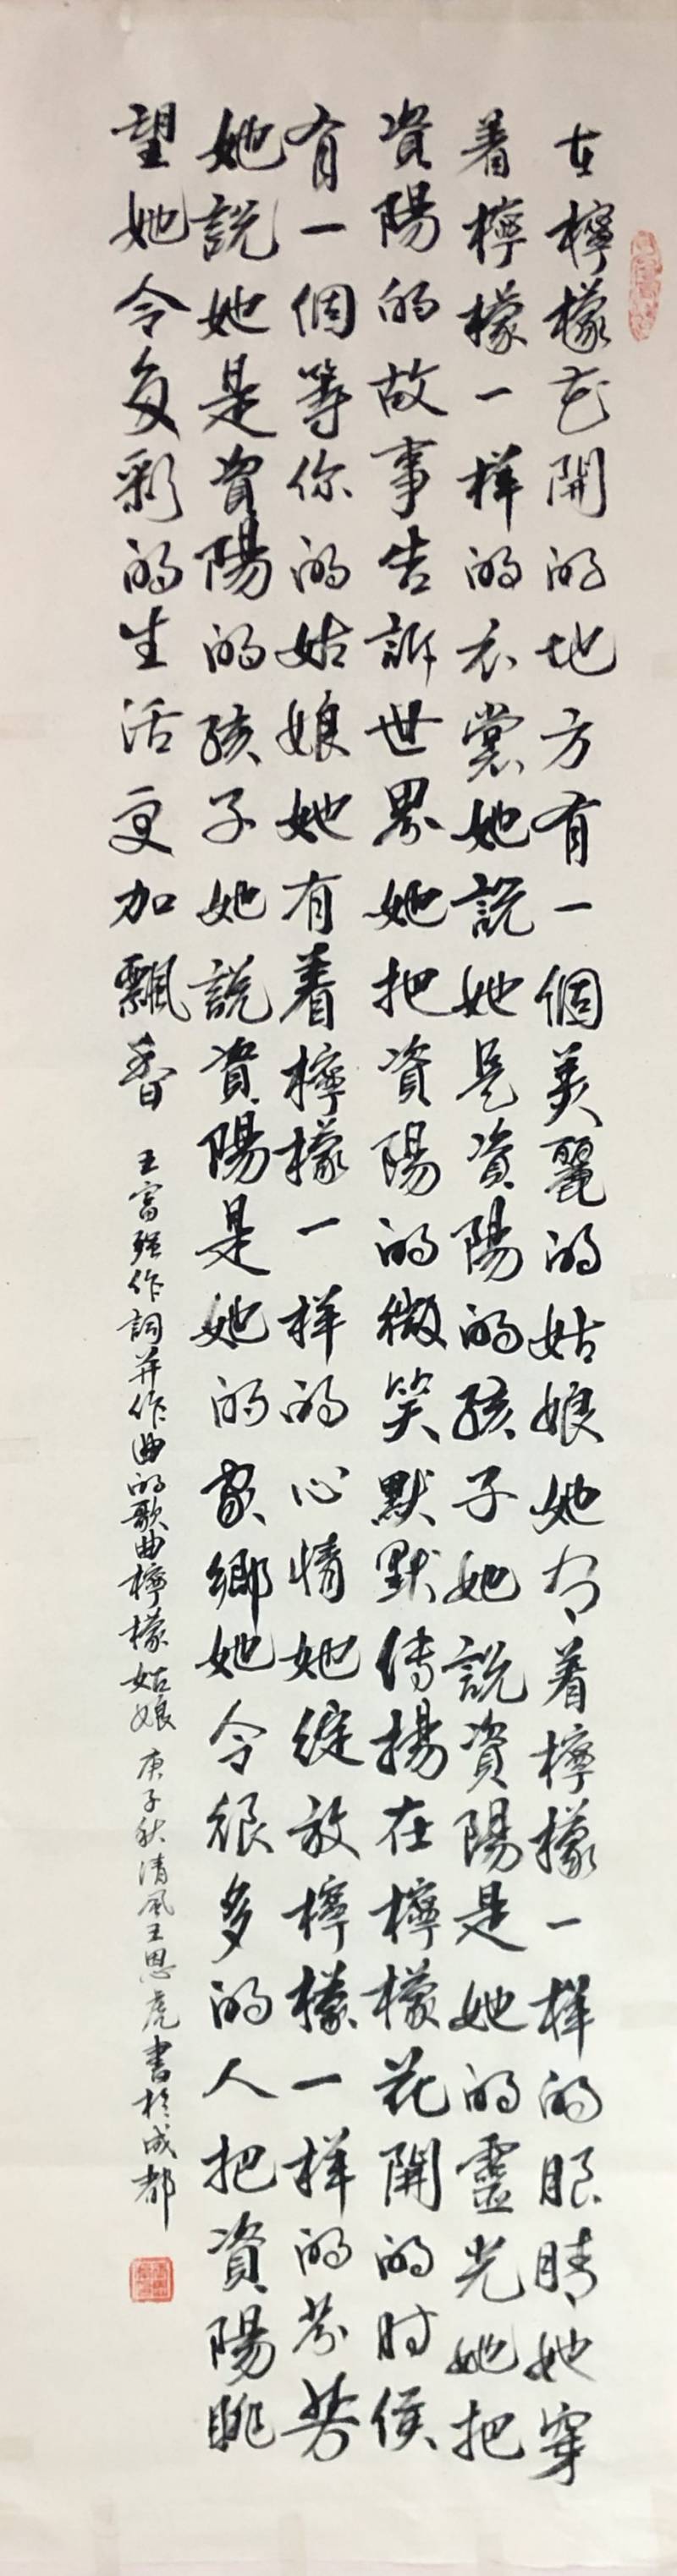 在檸檬花開的地方有一個美麗的姑娘她有着檸檬一樣的眼睛她穿
着檸檬一樣的衣裳她說她是資陽的孩子她說資陽是她的靈光她把
資陽的故事告訴世界她把資陽的微笑默默傳揚在檸檬花開的時候
有一個等你的姑娘她有着檸檬一樣的心情她綻放檸檬一樣的芬芳
她說她是資陽的孩子她說資陽是她的家鄉她令很多的人把資陽眺
望她令多彩的生活更加飄香
王富强作詞并作曲的歌曲檸檬姑娘 庚子秋清風王恩虎書於成都